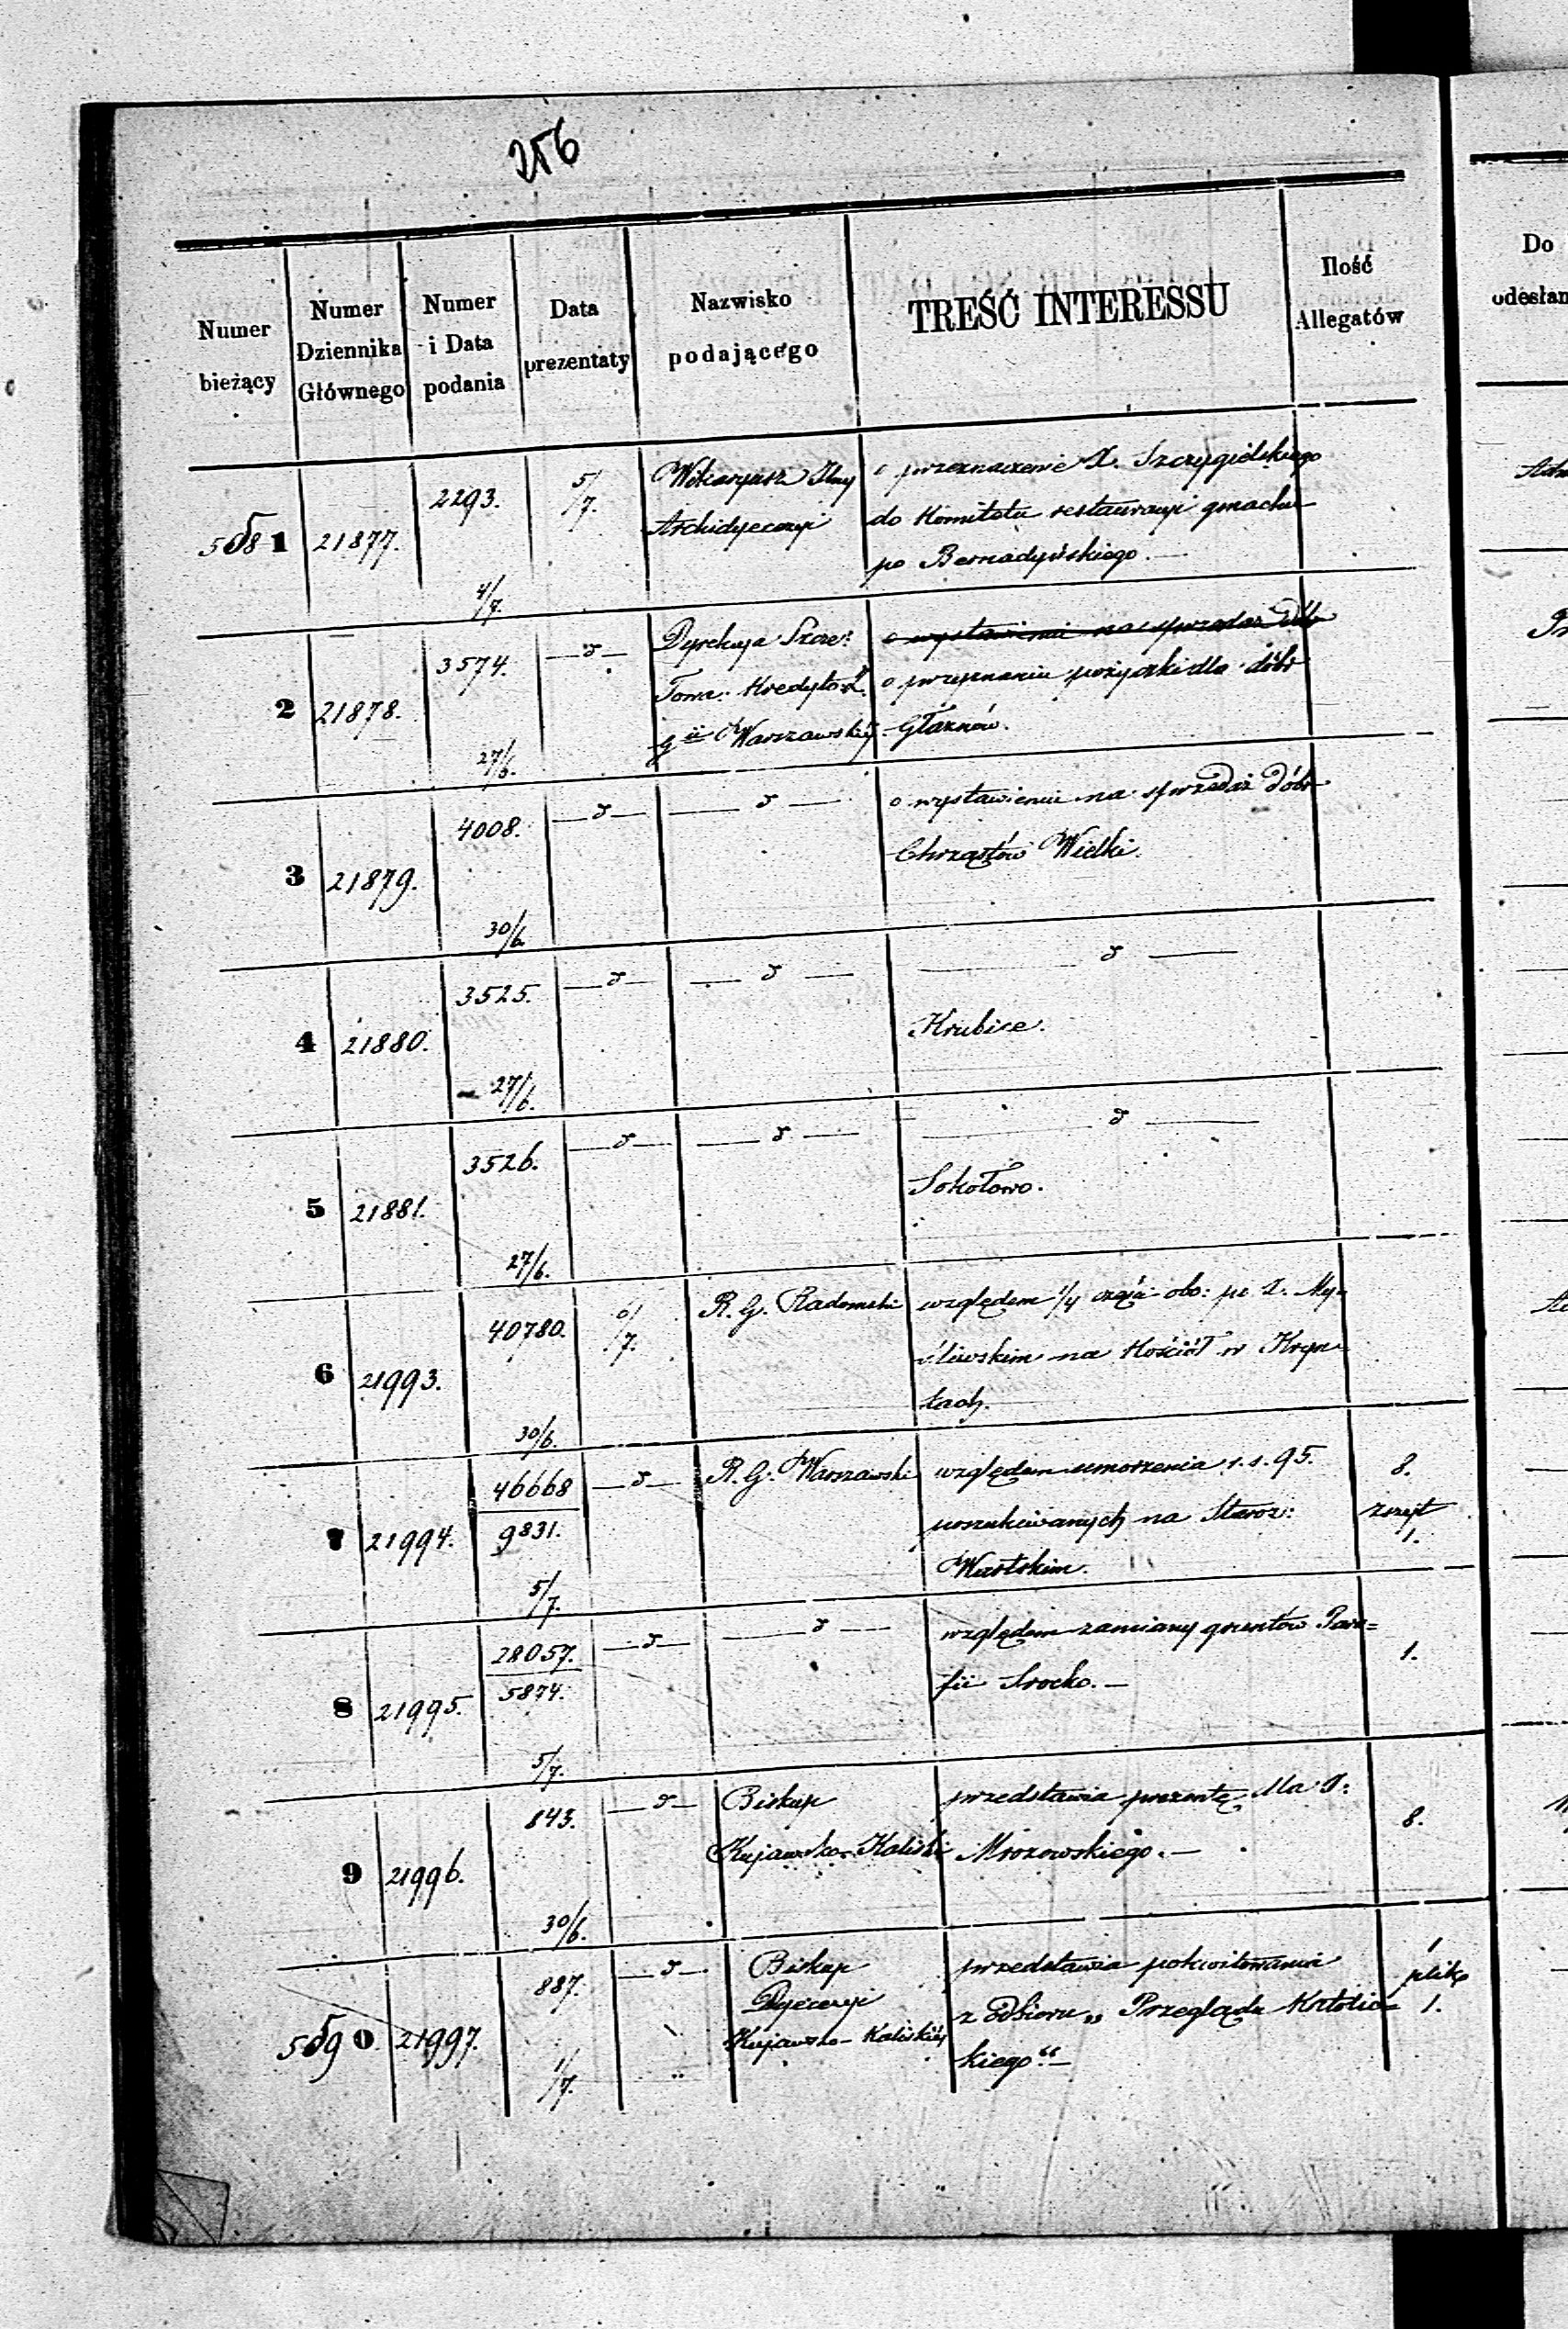 256
Numer bieżący
Numer Dziennika Głównego
Numer i Data podania
Data prezentaty
Nazwisko podającego
TREŚĆ INTERESSU
Ilość Allegatów
Do
odesłan
5581
21877.
2293.
4/7.
5/7.
Wikaryusz Jlny
Archidyecezyi
o przeznaczenie X. Szczygielskiego
do Komitetu restauracyi gmachu
po Bernadyńskiego. —
2
21878.
3574.
27/6.
— d —
Dyrekcya Szcze:
Towa: Kredyto:
gii Warszawskiej
o wystawieniu na sprzedaż Dóbr
o przyznaniu pożyczki dla dóbr
Głaznów.
3
21879.
4008.
30/6.
— d —
— d —
o wystawieniu na sprzedaż Dóbr
Chrząstów Wielki.
4
21880.
3525.
27/6.
— d —
— d —
— d —
Krubice.
5
21881.
3526.
27/6.
— d —
— d —
— d —
Sokołowo.
6
21993.
40780.
30/6.
6/7.
R. G. Radomski
względem 1/4 części obo: po X. My-
śliwskim na Kościół w
7
21994.
46668
9831.
5/7.
— d —
R. G. Warszawski
względem umorzenia r. s. 95.
poszukiwanych na Staroz:
8.
zeszyt
1.
8
21995.
28057.
5874.
5/7.
— d —
— d —
względem zamiany gruntów Para=
fii Srocko. —
1.
9
21996.
843.
30/6.
— d —
Biskup
Kujawsko-Kaliski
przedstawia prezentę dla X.
Mrozowskiego. —
8.
5590.
21997.
887.
1/7.
— d —
Biskup
Dyecezyi
Kujawsko-Kaliskiej
przedstawia pokwitowania
z odbioru „Przeglądu Katolic=
kiego“ —
plik
1.